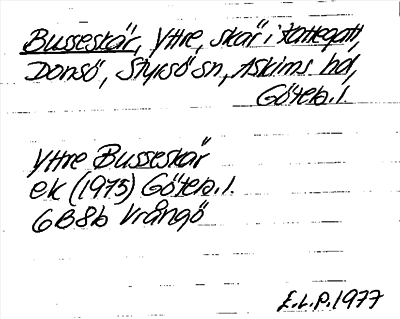 Busseskär, Yttre, skär i Kattegatt,
Donsö, Styrsö sn, Askims hd,
Göteb.l.
Yttre Busseskär
ek (1975) Göteb.l.
6B8b Vrångö
E.L.P.1977